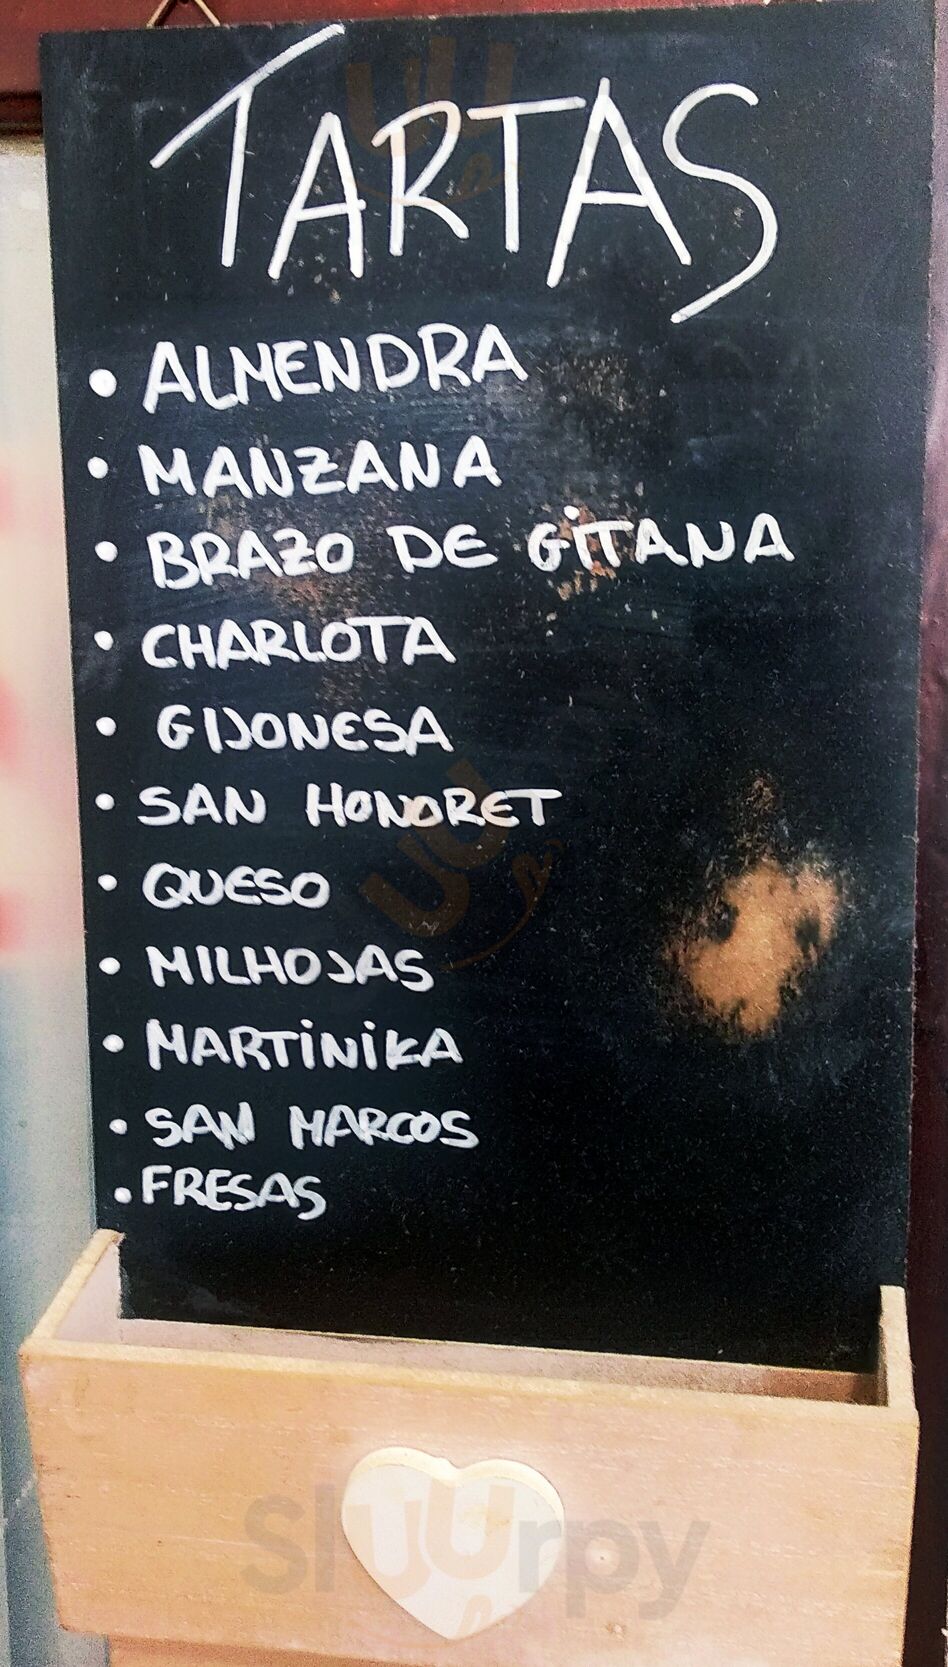 TARTAS
• ALMENDRA
• MANZANA
• BRAZO DE GITANA
• CHARLOTA
• GIJONESA
• SAN HONORET
• QUESO
• MILHOJAS
• MARTINIKA
• SAN MARCOS
• FRESAS
Sluurpy